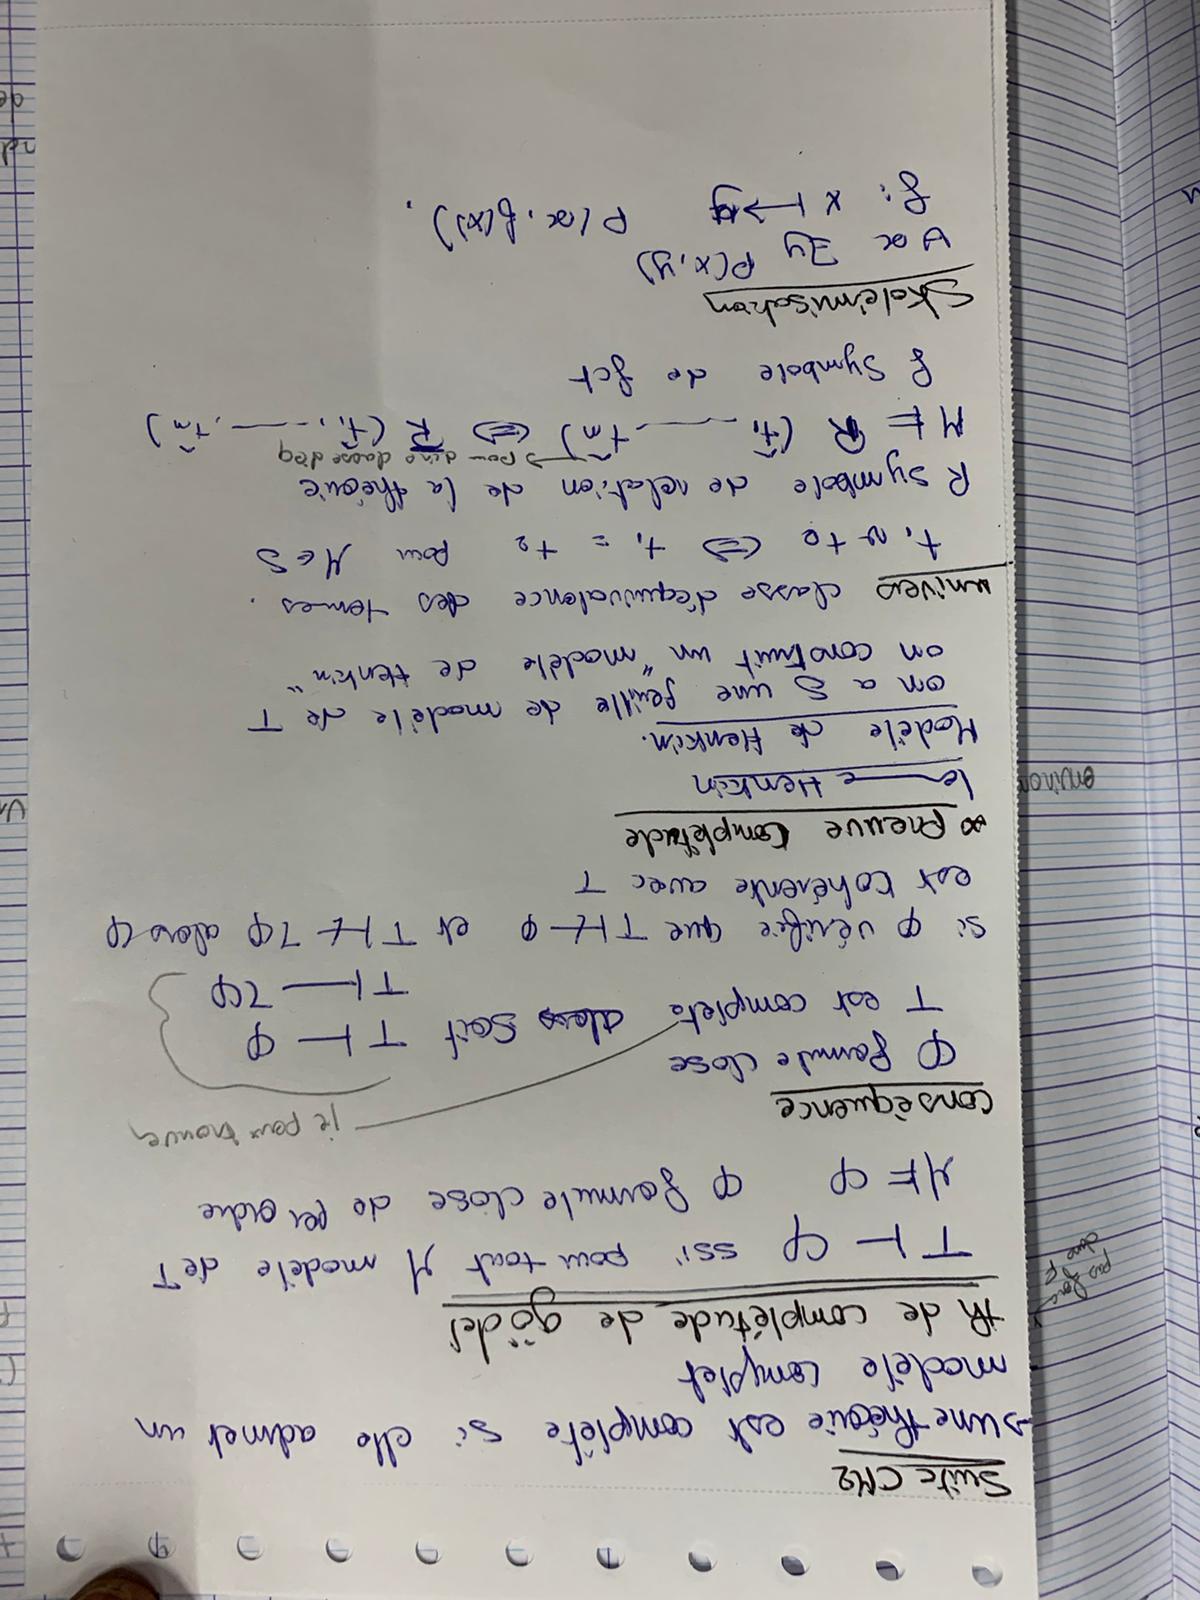 Suite CM2
→ une théorie est complète si elle admet un
modèle complet
th de complétude de gödel
T ⊢ φ ssi pour tout M modèle de T
M ⊨ φ φ formule close de 1er ordre
conséquence
φ formule close
T est complète alors soit T ⊢ φ
T ⊢ ¬φ
si φ vérifie que T ⊬ φ et T ⊬ ¬φ alors φ
est cohérente avec T
∞ Preuve Complétude
Henkin
Modèle de Henkin.
on a S une feuille de modèle de T
on construit un "modèle de Henkin"
univers classe d'équivalence des termes.
t₁ ~ t₂ ⇔ t₁ = t₂ pour M ∈ S
R symbole de relation de la théorie
→ pour dire classe d'eq
M ⊨ R (t̄₁, ---- t̄m) ⇔ R̄ (t̄₁, ---- , t̄m)
f symbole de fct
Skolémisation
∀x ∃y P(x,y)
f: x ↦ y P(x, f(x)).